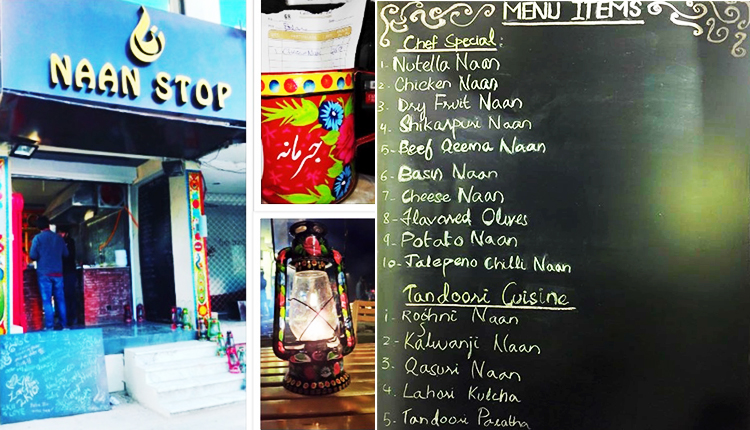 NAAN STOP
جرمانہ
MENU ITEMS
Chef Special:
1- Nutella Naan
2- Chicken Naan
3- Dry Fruit Naan
4- Shikarpuri Naan
5- Beef Qeema Naan
6- Basin Naan
7- Cheese Naan
8- flavored Olives
9- Potato Naan
10- Jalepeno Chilli Naan
Tandoori Cuisine
1- Roghni Naan
2- Kalwanji Naan
3- Qasuri Naan
4- Lahori Kulcha
5- Tandoori Paratha